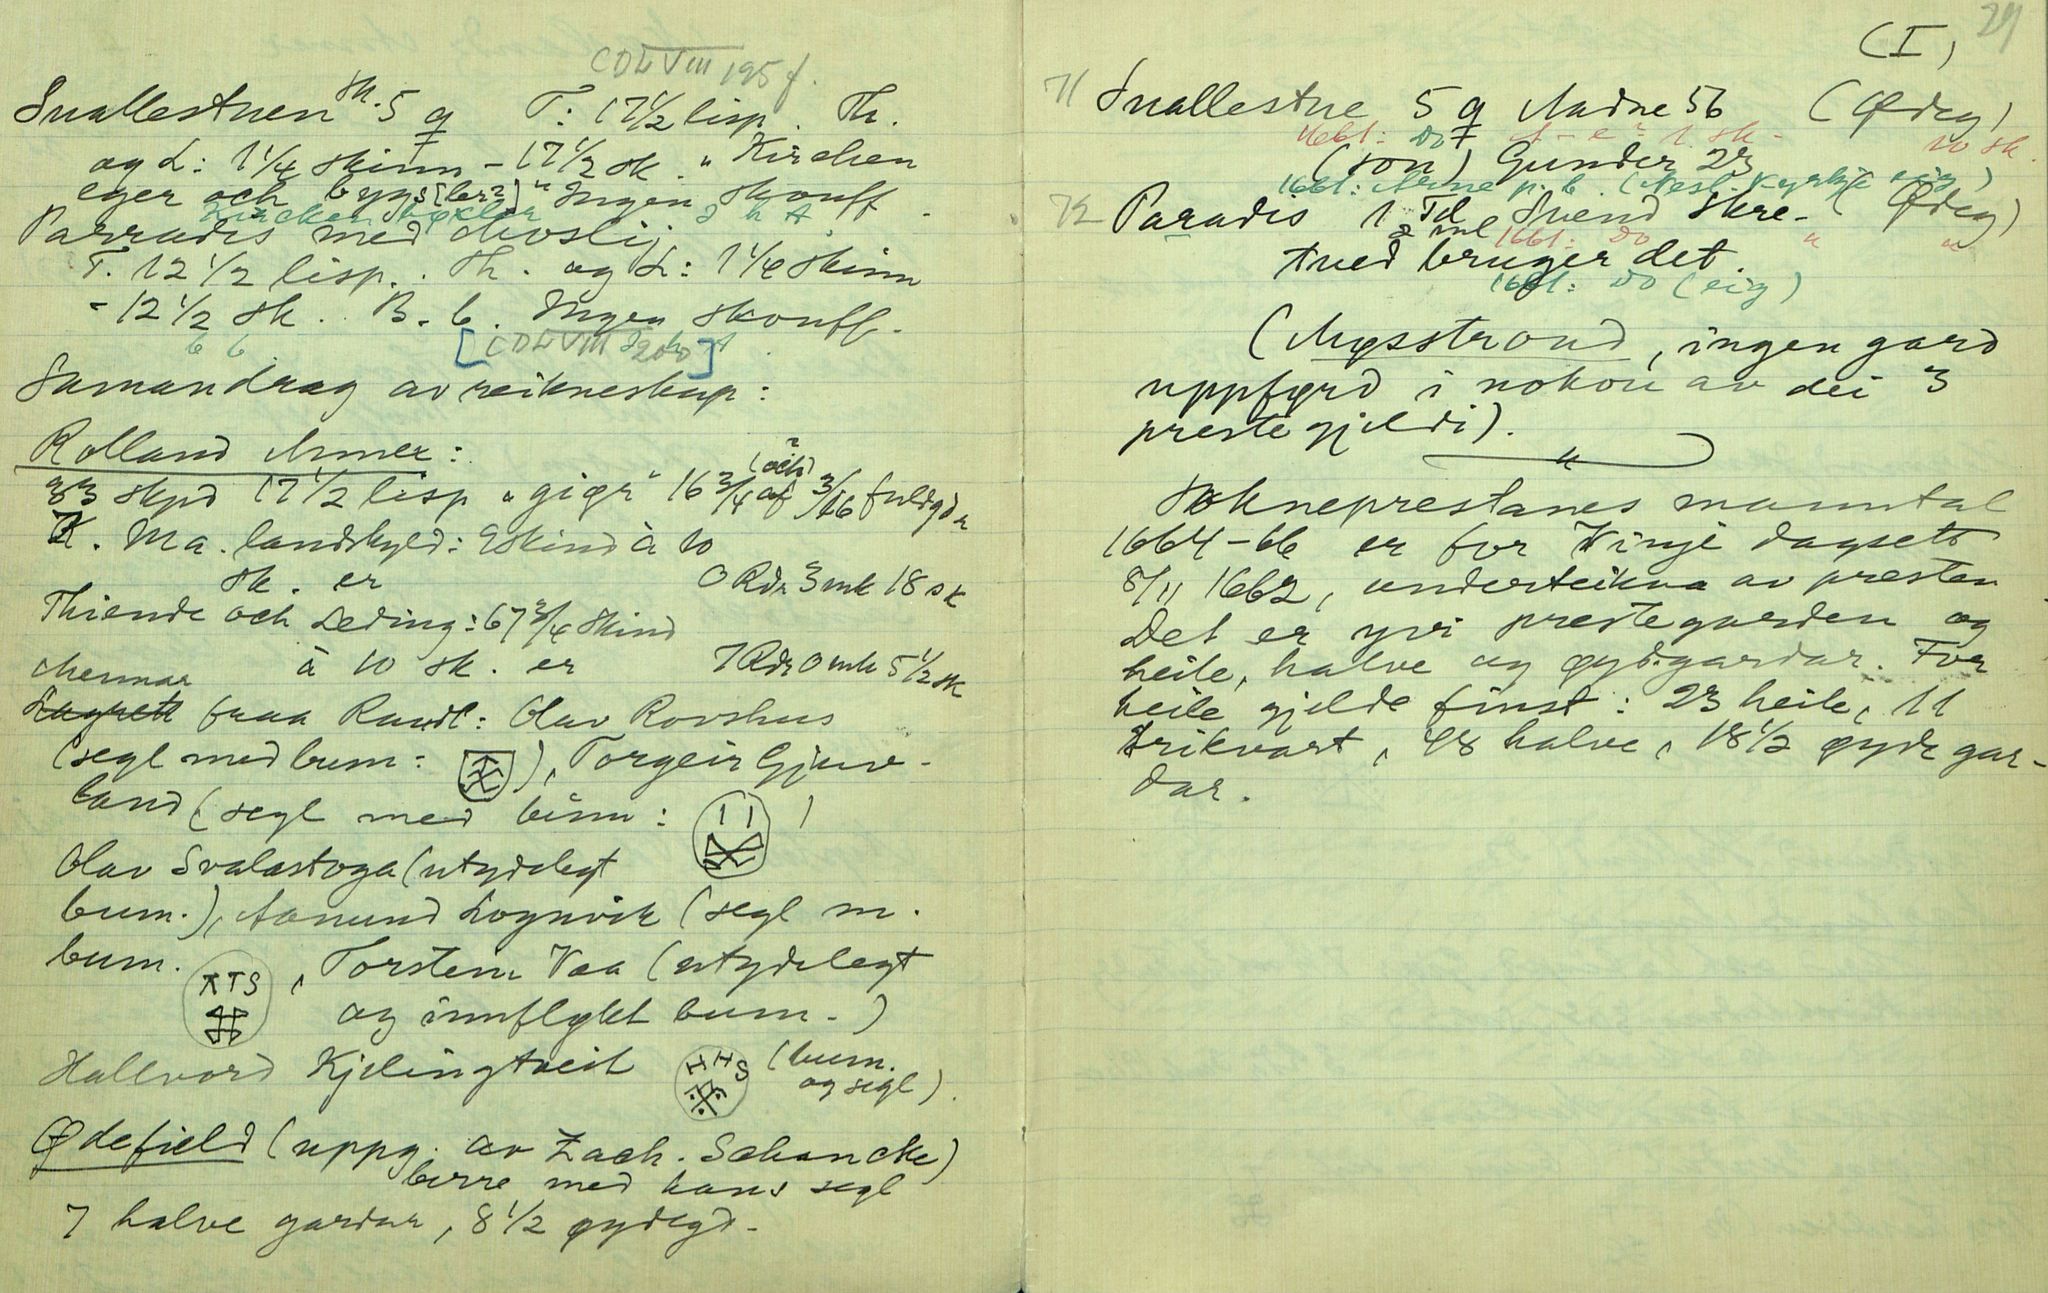 CDLVIII 195 f.
Snallestuen sk. 5 q T: 17 1/2 lisp. Sk.
og L: 1 1/4 skinn - 17 1/2 sk. "Kirchen
eger och bygs[ler?]" Ingen skouff.
Kirchen byxler
Parradis med
T. 12 1/2 lisp. Sk. og L: 1 1/4 skinn
- 12 1/2 sk. B. b. Ingen skouff.
b b
[CDLVIII 200]
Samandrag av reikneskap:
Rolland Annex:
33 skpd 17 1/2 lisp "giør" 16 3/4 (och?) af 3/16 fuldgdr
K. Ma. landskyld: 9 skind à 10
sk. er 0 Rdr 3 mk 18 sk
Thiende och Leding: 67 3/4 skind
à 10 sk. er 7 Rdr 0 mk 5 1/2 sk
Mennar
fraa Raudl: Olav Rovshus
(segl med bum: ), Torgeir Gjuv-
land (segl med bum: )
Olav Svalastoga (utydelegt
bum.), Aanund Lognvik (segl m.
bum. ATS, Torstein Vaa (utydelegt
og innflykt bum.)
Hallvord Kjelingtveit HHS (bum.
og segl).
Ødefield (uppg. av Zach. Schancke)
berre med hans segl
7 halve gardar, 8 1/2 øydegd.
(I) 29
71 Snallestue 5 q Aadne 56 (Ødeg)
1661: Do 1 sk. 10 sk.
(son) Gunder 23
1661: p. b. (Nesl. Kyrkje eig)
72 Paradis 1 Td Svend Skre- (Ødeg)
1661: Do " "
tved bruger det.
1661: Do (eig)
(Møsstrond, ingen gard
uppførd i nokon av dei 3
prestegjeldi).
"
Sokneprestanes manntal
1664-66 er for Vinje dagsett
8/11 1662, underteikna av presten
Det er yvi prestegarden og
heile, halve og øydegardar. For
heile gjelde finst: 23 heile, 11
trikvart, 48 halve, 18 1/2 øyde gar-
dar.